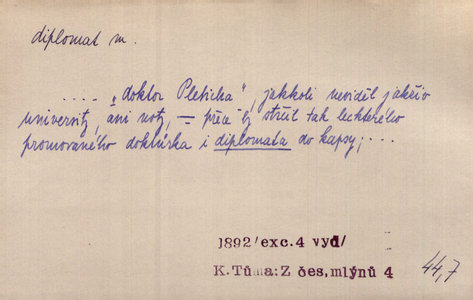 diplomat m.
.... „doktor Pleticha", jakkoli neviděl jakživ
university, ani noty, – přece by strčil tak leckterého
promovaného doktůrka i diplomata do kapsy; ...
1892/exc.4 vyd/
K.Tůma: Z čes,mlýnů 4
44,7